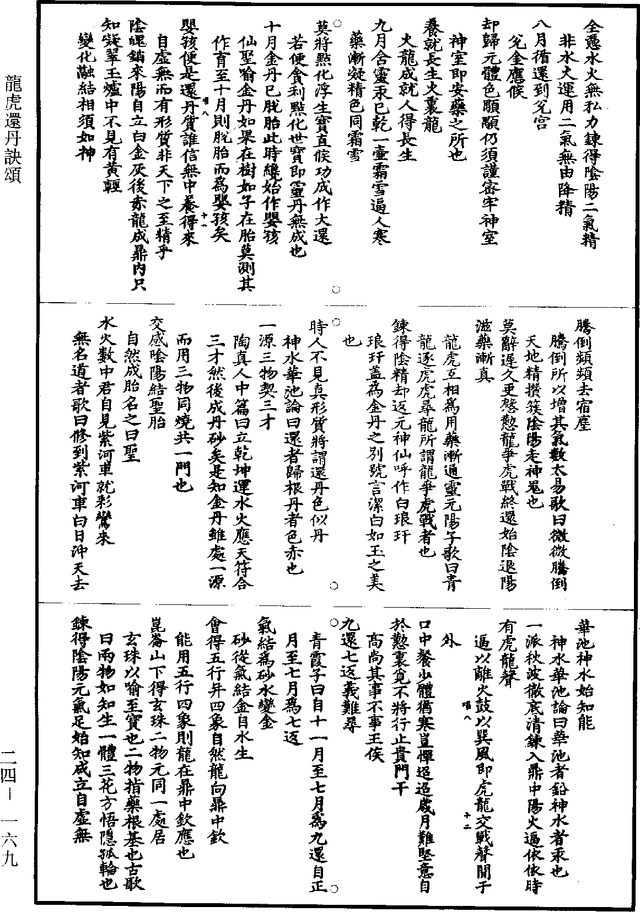 全憑水火無私力鍊得陰陽二氣精
非水火運用二氣無由降精
八月循還到兊宮
兊金應候
却歸元體色顒顒仍須謹密牢神室
神室即安藥之所也
養就長生火裏龍
火龍成就人得長生
九月含靈汞已乾一壷霜雪逼人寒
藥漸凝精色同霜雪
莫將㸃化浮生寳直候功成作大還
若便貪利㸃化世寳即靈丹無成也
十月金丹已脫胎此時纔始作嬰孩
仙聖喻金丹如果在樹如子在胎莫測其
作育至十月則脫胎而為嬰孩矣
嬰孩便是還丹質誰信無中養得來
自虛無而有形質非天下之至精乎
陰魄銷來陽自立白金灰後赤龍成鼎内只
知凝翠玉爐中不見有黃輕
變化融結相須如神
騰倒頻頻去宿塵
騰倒所以增其氣數太易歌曰微微騰倒
天地精攢簇陰陽走神鬼也
莫辭遲久更慇懃龍爭虎戰終還始陰退陽
滋藥漸真
龍虎互相為用藥漸通靈元陽子歌曰青
龍逐虎虎尋龍所謂龍爭虎戰者也
鍊得陰精却返元神仙呼作白琅玕
琅玕蓋為金丹之别號言潔白如玉之美
也
時人不見真形質將謂還丹色似丹
神水華池論曰還者歸根丹者色赤也
一源三物契三才
陶真人中篇曰立乾坤運水火應天符合
三才然後成丹砂矣是知金丹雖處一源
而用三物同燒共一門也
交感陰陽結聖胎
自然成胎名之曰聖
水火數中君自見紫河車就彩鸞來
無名道者歌曰修到紫河車白日沖天去
華池神水始知能
神水華池論曰華池者鉛神水者汞也
一派秋波徹底清鍊入鼎中陽火逼依依時
有虎龍聲
逼以離火鼓以巽風即虎龍交戰聲聞于
外
口中餐少體猶寒豈憚迢迢歲月難堅意自
於懃裏覓不將行止貴門干
高尚其事不事王侯
九還七返義難尋
青霞子曰自十一月至七月為九還自正
月至七月為七返
氣結為砂水變金
砂從氣結金自水生
會得五行并四象自然龍向鼎中欽
能用五行四象則龍在鼎中欽應也
崑崙山下得玄珠二物元同一處居
玄珠以喻至寳也二物指藥根基也古歌
曰兩物如知生一體三花方悟隱孤輪也
鍊得陰陽元氣足始知成立自虛無
龍虎還丹訣頌
二四－一六九